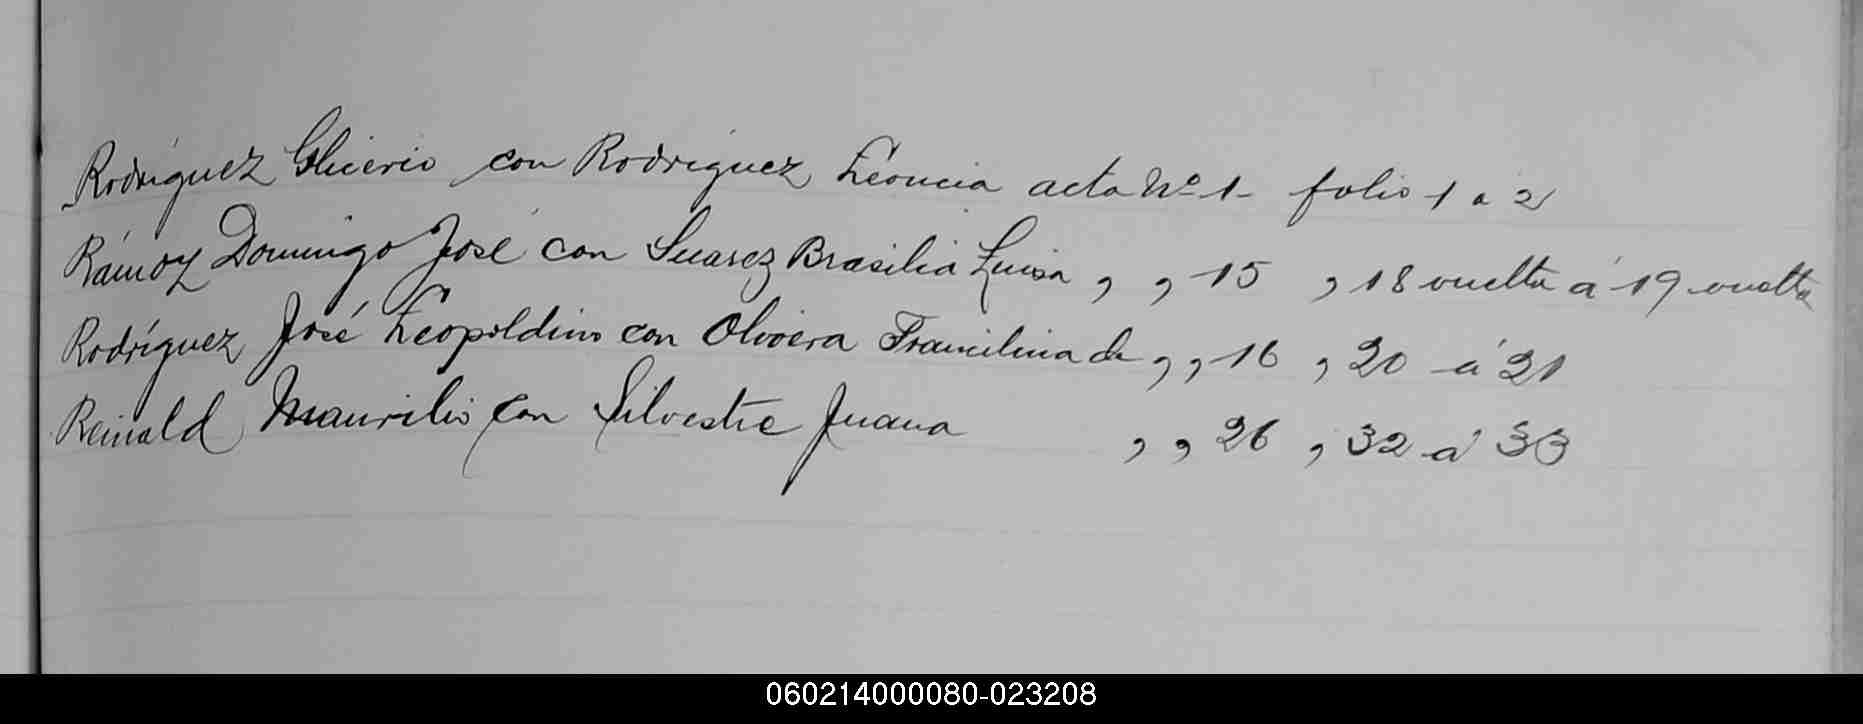 Rodríguez Glicerio con Rodríguez Leoncia acta Nº 1- folio 1 a 2
Rámoz Domingo José con Suarez Brasilia Luisa , , 15 , 18 vuelta á 19 vuelta
Rodríguez José Leopoldino con Olivera Francilina de , , 16 , 20 á 21
Reinald Maurilio con Silvestre Juana , , 26 , 32 á 33
060214000080-023208